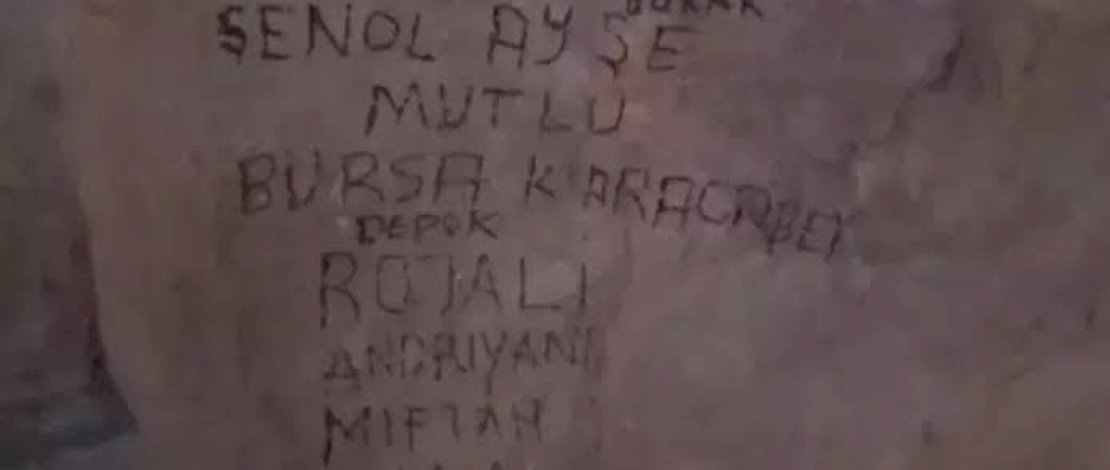 BURAK
ŞENOL AYŞE
MUTLU
BURSA KARACABEY
DEPOK
ROJALI
ANDRIYANI
MIFTAH